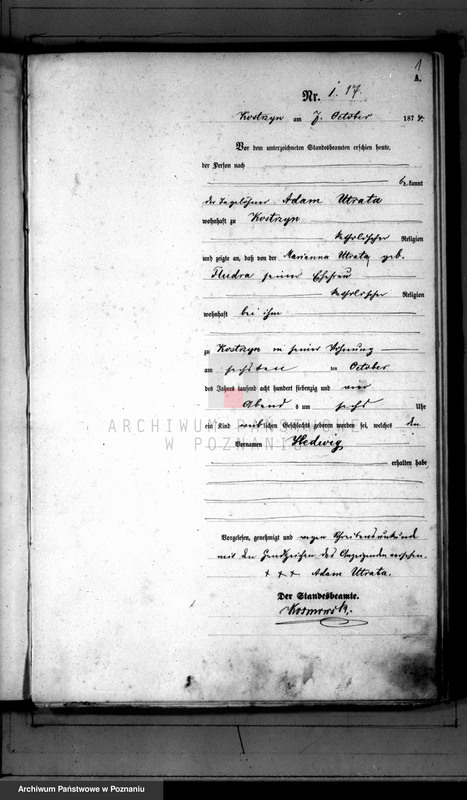 1
A.
Nr. 1. 17.
Kostrzyn am 7. October 1874.
Vor dem unterzeichneten Standesbeamten erschien heute,
der Person nach
bekannt
der Tagelöhner Adam Utrata
wohnhaft zu Kostrzyn
katholischer Religion
und zeigte an, daß von der Marianna Utrata geb.
Fludra seiner Ehefrau
katholischer Religion
wohnhaft bei ihm
zu Kostrzyn in seiner Wohnung
am sechsten ten October
des Jahres tausend acht hundert siebenzig und vier
Abend s um sechs Uhr
ein Kind weiblichen Geschlechts geboren worden sei, welches den
ARCHIWUM PAŃSTWOWE
W POZNANIU
Vornamen Hedwig
erhalten habe
Vorgelesen, genehmigt und wegen Schreibensunkunde
mit den Handzeichen des Anzeigenden versehen.
+ + + Adam Utrata.
Der Standesbeamte.
Archiwum Państwowe w Poznaniu